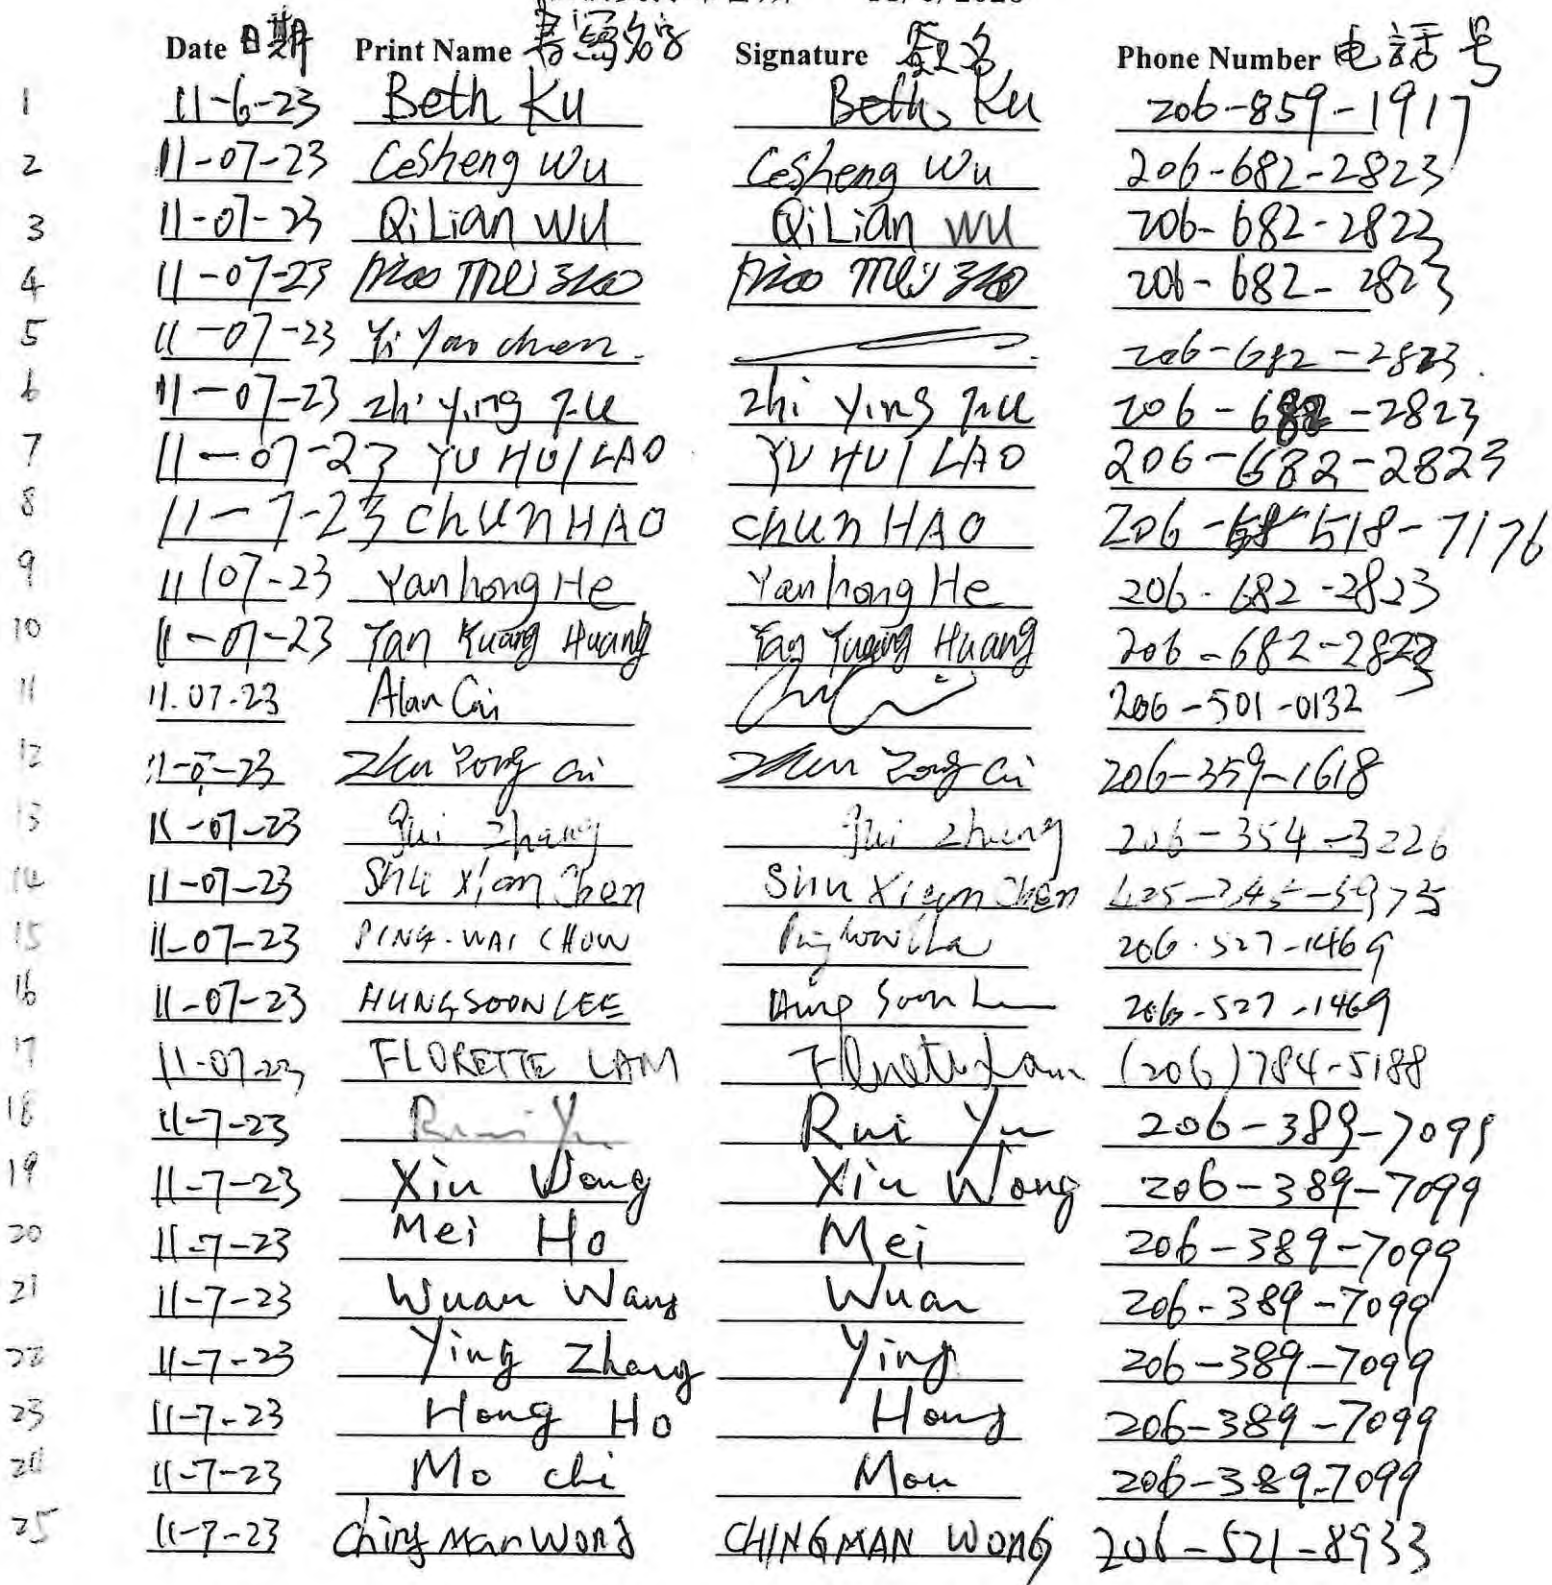 Date 日期 Print Name 書寫名字 Signature 簽名 Phone Number 电話号
1 11-6-23 Beth Ku Beth Ku 206-859-1917
2 11-07-23 CeSheng Wu CeSheng Wu 206-682-2823
3 11-07-23 QiLian WU QiLian WU 206-682-2823
4 11-07-23 Mei Mei 206-682-2823
5 11-07-23 Yi Yan chen. 206-682-2823.
6 11-07-23 zhi ying zhi Ying 206-682-2823
7 11-07-23 YU HUI LAO YU HUI LAO 206-682-2823
8 11-7-23 CHUN HAO CHUN HAO 206-518-7176
9 11/07-23 Yanhong He Yanhong He 206-682-2823
10 11-07-23 Yan Kuang Huang Yan Yuang Huang 206-682-2823
11 11.07.23 Alan Cai 206-501-0132
12 11-07-23 Zhu Zong Cai Zong Cai 206-359-1618
13 11-07-23 Gui Zhang Gui Zhang 206-354-3226
14 11-07-23 Shu Xian Chen Shu Xian Chen 425-245-5975
15 11-07-23 PING-WAI CHOW 206-527-1469
16 11-07-23 HUNG SOON LEE Hung Soon 206-527-1469
17 11-07-23 FLORETTE LAM Florette Lam (206)784-5188
18 11-7-23 Rui Yu Rui Yu 206-389-7099
19 11-7-23 Xin Wong Xin Wong 206-389-7099
20 11-7-23 Mei Ho Mei 206-389-7099
21 11-7-23 Wuan Wang Wuan 206-389-7099
22 11-7-23 Ying Zhang Ying 206-389-7099
23 11-7-23 Hong Ho Hong 206-389-7099
24 11-7-23 Mo chi Mou 206-389-7099
25 11-7-23 Ching Man Wong CHING MAN WONG 206-521-8933